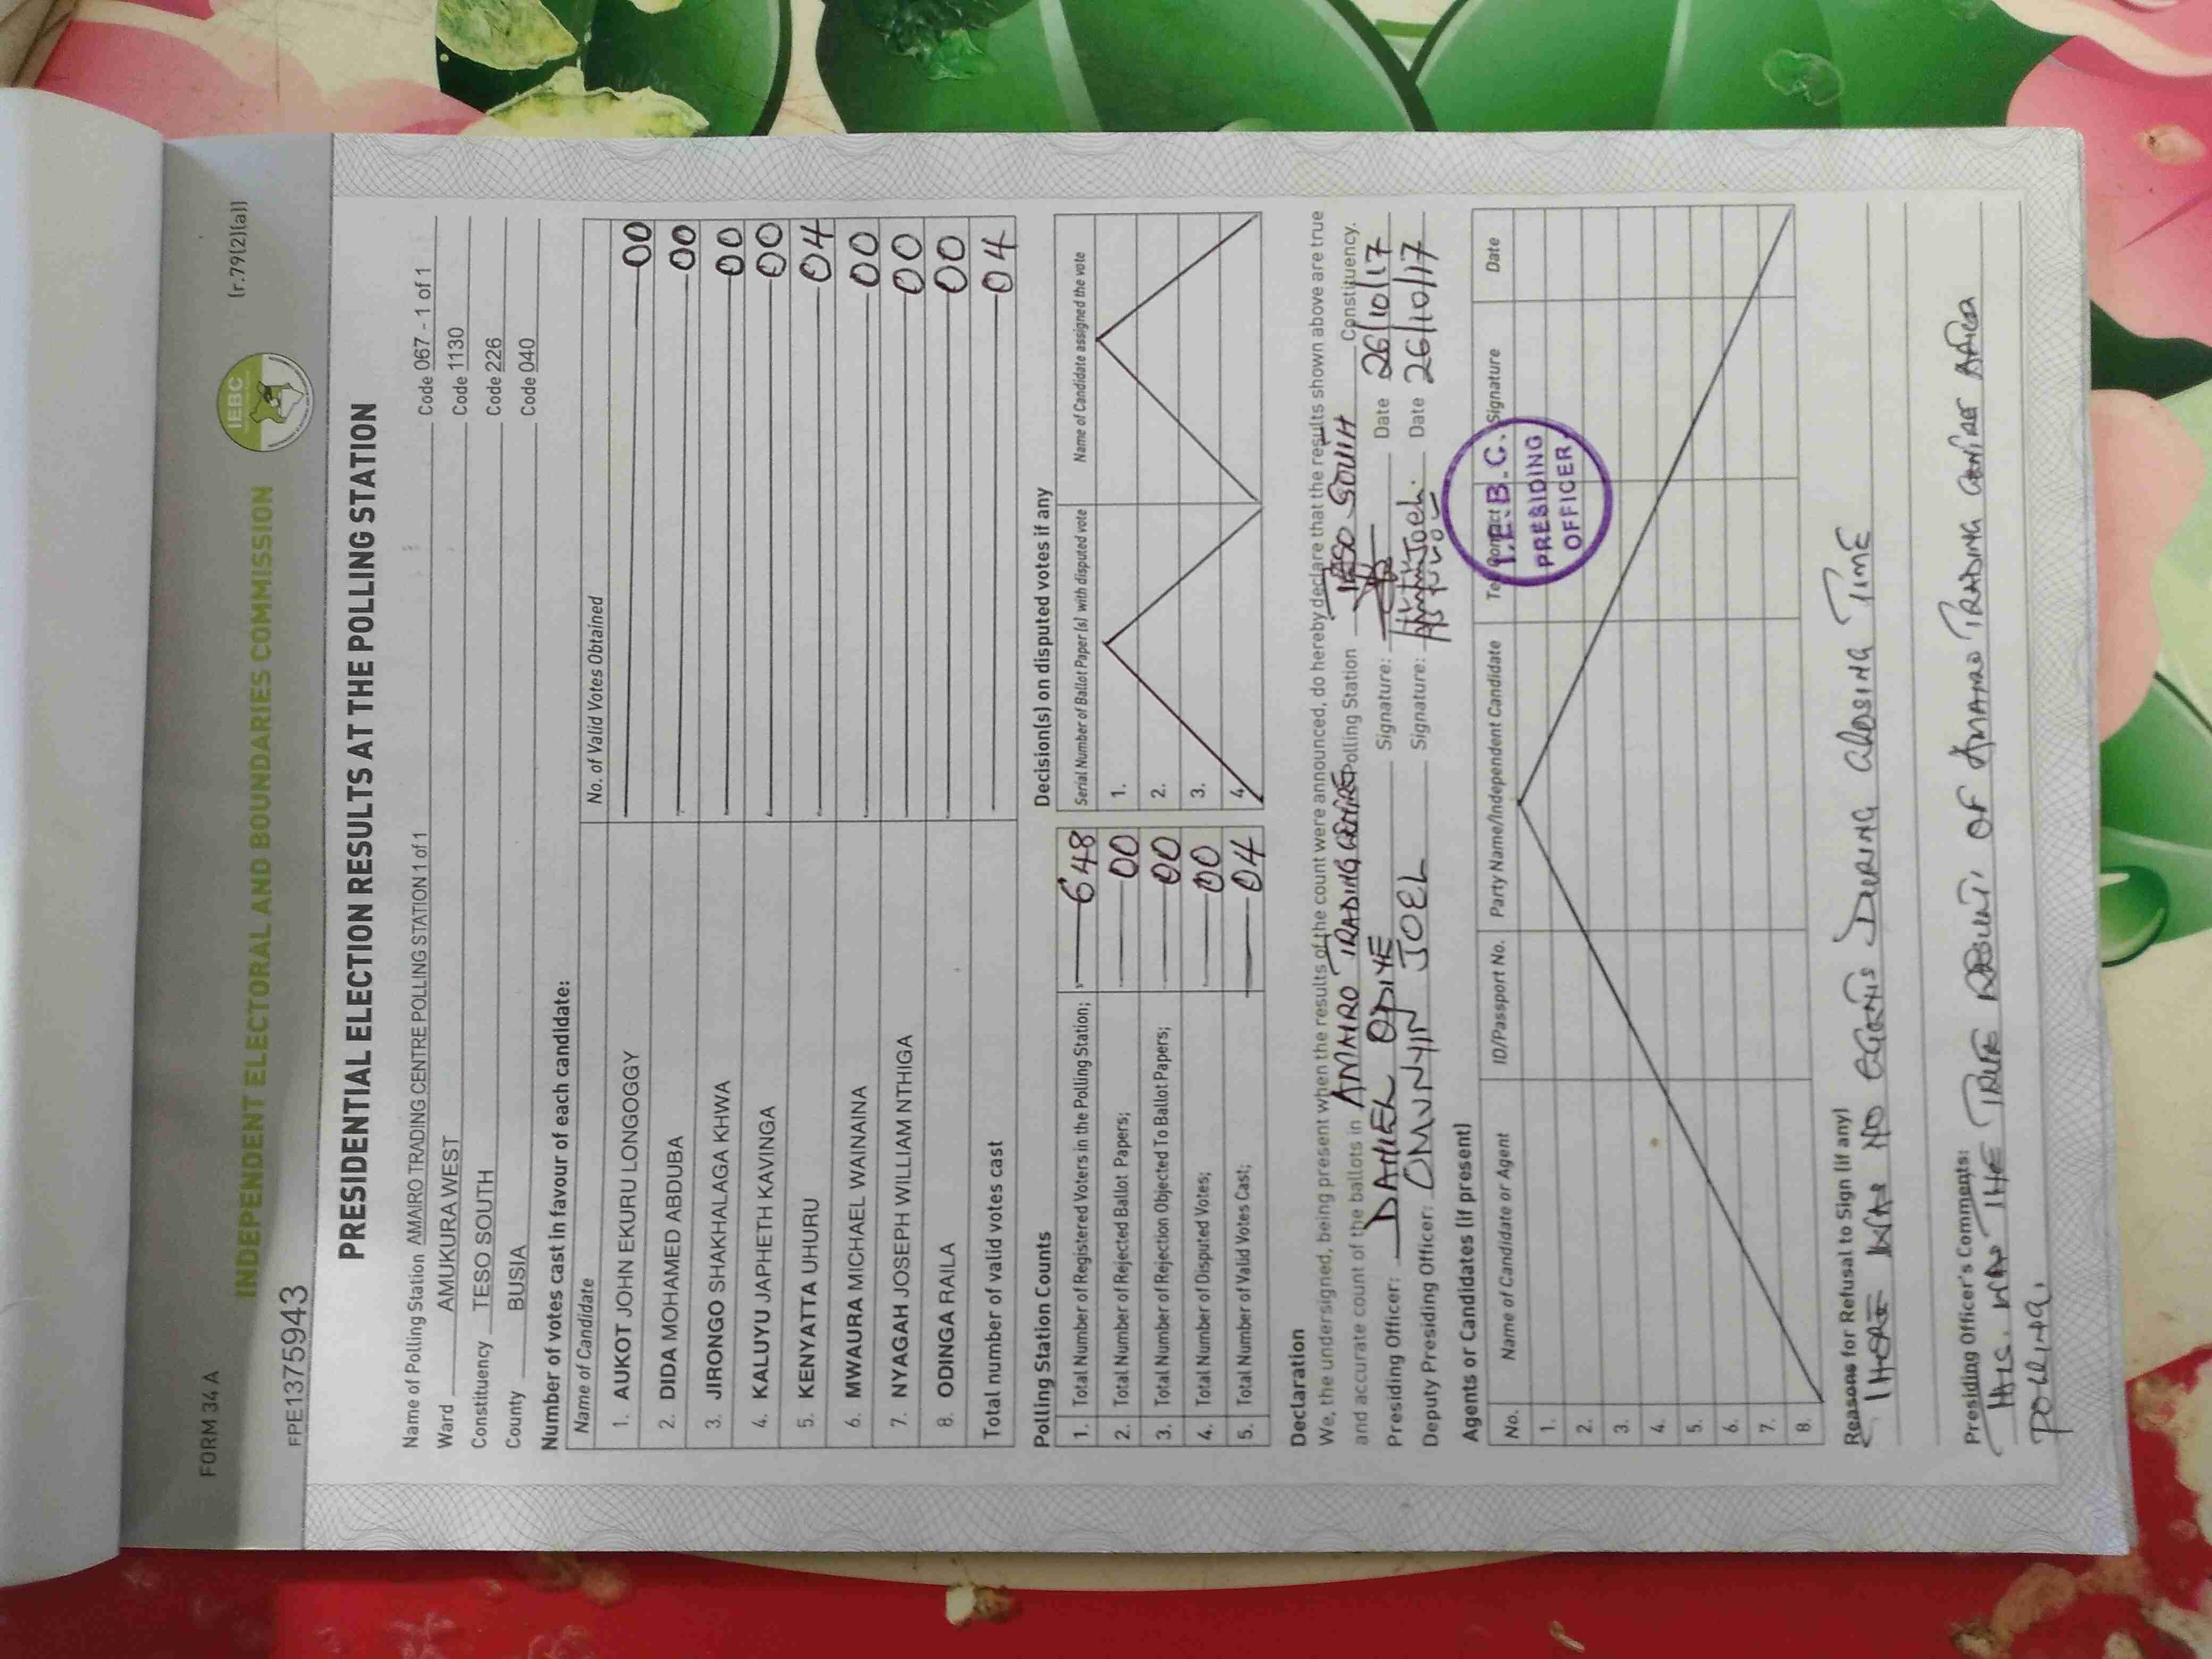 FORM 34 A
(r.79(2)(a))
INDEPENDENT ELECTORAL AND BOUNDARIES COMMISSION
IEBC
FPE1375943
PRESIDENTIAL ELECTION RESULTS AT THE POLLING STATION
Name of Polling Station AMAIRO TRADING CENTRE POLLING STATION 1 of 1 Code 067 - 1 of 1
Ward AMUKURA WEST Code 1130
Constituency TESO SOUTH Code 226
County BUSIA Code 040
Number of votes cast in favour of each candidate:
Name of Candidate No. of Valid Votes Obtained
1. AUKOT JOHN EKURU LONGOGGY 00
2. DIDA MOHAMED ABDUBA 00
3. JIRONGO SHAKHALAGA KHWA 00
4. KALUYU JAPHETH KAVINGA 00
5. KENYATTA UHURU 04
6. MWAURA MICHAEL WAINAINA 00
7. NYAGAH JOSEPH WILLIAM NTHIGA 00
8. ODINGA RAILA 00
Total number of valid votes cast 04
Polling Station Counts
1. Total Number of Registered Voters in the Polling Station; 648
2. Total Number of Rejected Ballot Papers; 00
3. Total Number of Rejection Objected To Ballot Papers; 00
4. Total Number of Disputed Votes; 00
5. Total Number of Valid Votes Cast; 04
Decision(s) on disputed votes if any
Serial Number of Ballot Paper (s) with disputed vote Name of Candidate assigned the vote
1.
2.
3.
4.
Declaration
We, the undersigned, being present when the results of the count were announced, do hereby declare that the results shown above are true
and accurate count of the ballots in AMAIRO TRADING CENTRE Polling Station TESO SOUTH Constituency.
Presiding Officer: DANIEL ODIYE Signature: Date 26/10/17
Deputy Presiding Officer: OMUNYIN JOEL Signature: Joel. Date 26/10/17
Agents or Candidates (if present)
No. Name of Candidate or Agent ID/Passport No. Party Name/Independent Candidate Tel Contact Signature Date
1.
2.
3.
4.
5.
6.
7.
8.
I.E.B.C.
PRESIDING
OFFICER
Reasons for Refusal to Sign (if any)
THERE WAS NO AGENTS DURING CLOSING TIME
Presiding Officer's Comments:
THIS WAS THE TRUE RESULT OF AMAIRO TRADING CENTRE AFTER
POLLING.